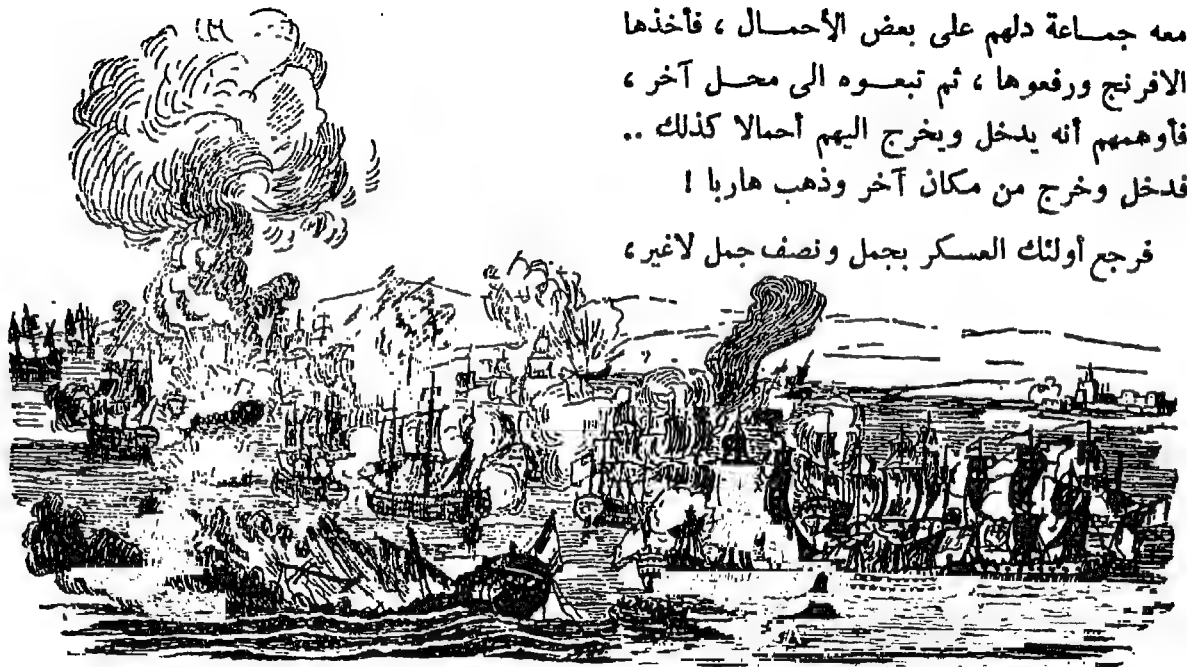 معه جمـاعة دلهم على بعض الأحمـال ، فأخذها
الافرنج ورفعوها ، ثم تبعـوه الى محـل آخر ،
فأوهمهم أنه يدخل ويخرج اليهم أحمالا كذلك ..
فدخل وخرج من مكان آخر وذهب هاربا !
فرجع أولئك العسكر بجمل ونصف جمل لاغير ،